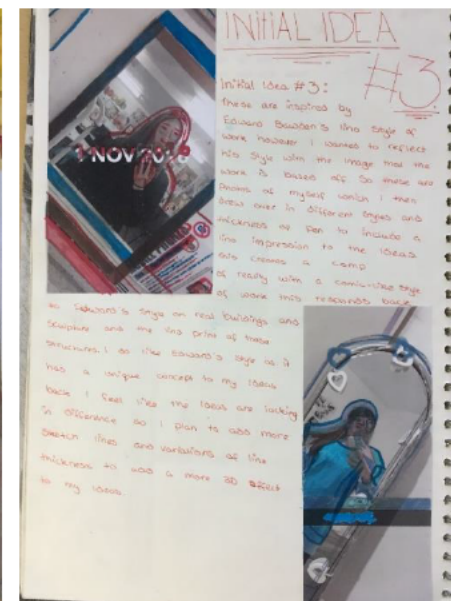 INITIAL IDEA
#3
Initial Idea #3:
these are inspired by
Edward Bawden's lino style of
work however I wanted to reflect
his style with the image that the
work is based off so these are
photos of myself which I then
drew over in different styles and
thickness of pen to include a
lino impression to the ideas
this creates a comp
of reality with a comic-like style
of work this responds back
to Edward's style on real buildings and
sculpture and the lino print of these
structures. I do like Edward's style as it
has a unique concept to my ideas
back I feel like the ideas are lacking
in difference so I plan to add more
sketch lines and variations of line
thickness to add a more 3D effect
to my ideas.
1 NOV